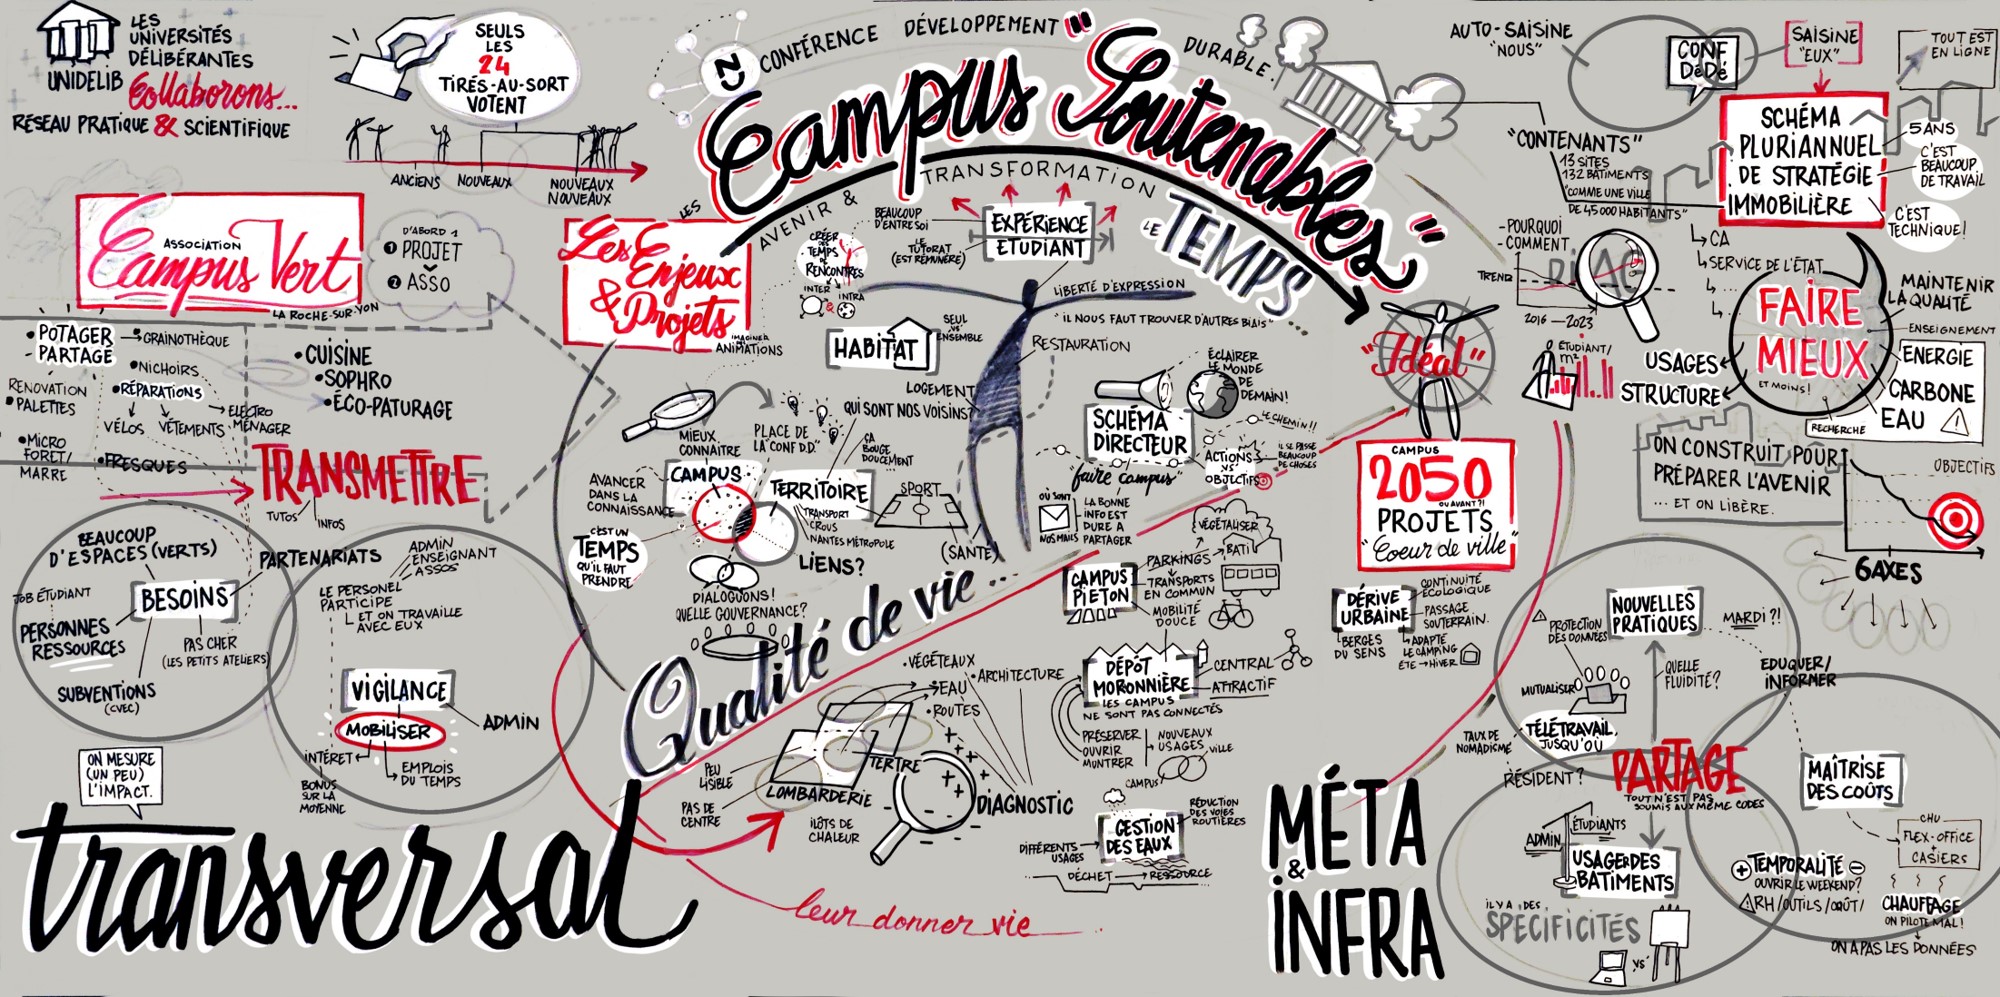 LES
UNIVERSITÉS
DÉLIBÉRANTES
UNIDELIB
Collaborons...
RÉSEAU PRATIQUE & SCIENTIFIQUE
SEULS
LES
24
TIRÉS-AU-SORT
VOTENT
ANCIENS
NOUVEAUX
NOUVEAUX
NOUVEAUX
ASSOCIATION
Campus Vert
LA ROCHE-SUR-YON
D'ABORD 1
1 PROJET
2 ASSO
• POTAGER
PARTAGÉ
GRAINOTHÈQUE
• NICHOIRS
• RÉPARATIONS
VÉLOS
VÊTEMENTS
ELECTRO
MÉNAGER
RENOVATION
• PALETTES
• MICRO
FORET/
MARRE
• FRESQUES
• CUISINE
• SOPHRO
• ÉCO-PATURAGE
TRANSMETTRE
TUTOS
INFOS
BEAUCOUP
D'ESPACES (VERTS)
JOB ÉTUDIANT
BESOINS
PERSONNES
RESSOURCES
PAS CHER
(LES PETITS ATELIERS)
SUBVENTIONS
(CVEC)
PARTENARIATS
ADMIN
ENSEIGNANT
ASSOS
LE PERSONEL
PARTICIPE
ET ON TRAVAILLE
AVEC EUX
VIGILANCE
MOBILISER
ADMIN
INTÉRET
EMPLOIS
DU TEMPS
BONUS
SUR LA
MOYENNE
ON MESURE
(UN PEU)
L'IMPACT.
transversal
NU
CONFÉRENCE DÉVELOPPEMENT DURABLE.
"Campus Soutenables"
LES
Les Enjeux
& Projets
AVENIR & TRANSFORMATION
LE TEMPS...
BEAUCOUP
D'ENTRE SOI
LE
TUTORAT
(EST REMUNÉRÉ)
EXPÉRIENCE
ETUDIANT
CRÉER
DES
TEMPS
DE
RENCONTRES
INTER
&
INTRA
IMAGINER
ANIMATIONS
LIBERTÉ D'EXPRESSION
"IL NOUS FAUT TROUVER D'AUTRES BIAIS"
HABITAT
SEUL
VS
ENSEMBLE
RESTAURATION
LOGEMENT
QUI SONT NOS VOISINS
ÇA
BOUGE
DOUCEMENT
PLACE DE
LA "CONF D.D."
MIEUX
CONNAÎTRE
CAMPUS
AVANCER
DANS LA
CONNAISSANCE
C'EST UN
TEMPS
QU'IL FAUT
PRENDRE
TERRITOIRE
TRANSPORT
CROUS
NANTES MÉTROPOLE
LIENS?
SPORT
(SANTÉ)
DIALOGUONS!
QUELLE GOUVERNANCE?
Qualité de vie...
ÉCLAIRER
LE MONDE
DE
DEMAIN!
SCHÉMA
DIRECTEUR
"faire campus"
LE CHEMIN!!
ACTIONS
VS
OBJECTIFS
IL SE PASSE
BEAUCOUP
DE CHOSES
OÙ SONT
NOS MAILS
LA BONNE
INFO EST
DURE A
PARTAGER
VÉGÉTALISER
BATI
PARKINGS
TRANSPORTS
EN COMMUN
MOBILITÉ
DOUCE
CAMPUS
PIÉTON
DÉPÔT
MORONNIÈRE
CENTRAL
ATTRACTIF
LES CAMPUS
NE SONT PAS CONNECTÉS
PRÉSERVER
OUVRIR
MONTRER
NOUVEAUX
USAGES
VILLE
CAMPUS
• VÉGÉTEAUX
• EAU
• ROUTES
• ARCHITECTURE
TERTRE
LOMBARDERIE
PEU
LISIBLE
PAS DE
CENTRE
ILÔTS DE
CHALEUR
DIAGNOSTIC
GESTION
DES EAUX
RÉDUCTION
DES VOIES
ROUTIÈRES
DIFFÉRENTS
USAGES
DÉCHET
RESSOURCE
leur donner vie
"Idéal"
CAMPUS
2050
OU AVANT?!
PROJETS
"Coeur de ville"
DÉRIVE
URBAINE
CONTINUITÉ
ÉCOLOGIQUE
PASSAGE
SOUTERRAIN.
ADAPTÉ
LE CAMPING
ÉTÉ → HIVER
BERGES
DU SENS
MÉTA
&
INFRA
AUTO-SAISINE
"NOUS"
CONF
DéDé
SAISINE
"EUX"
TOUT EST
EN LIGNE
"CONTENANTS"
13 SITES
132 BATIMENTS
"COMME UNE VILLE
DE 45 000 HABITANTS"
SCHÉMA
PLURIANNUEL
DE STRATÉGIE
IMMOBILIÈRE
5 ANS
C'EST
BEAUCOUP
DE TRAVAIL
C'EST
TECHNIQUE!
- POURQUOI
- COMMENT
TREND
2016 — 2023
CA
SERVICE DE L'ÉTAT
FAIRE
MIEUX
ET MOINS!
MAINTENIR
LA QUALITÉ
ENSEIGNEMENT
ENERGIE
CARBONE
EAU
RECHERCHE
USAGES
STRUCTURE
ÉTUDIANT/
m²
ON CONSTRUIT POUR
PRÉPARER L'AVENIR
... ET ON LIBÈRE.
OBJECTIFS
6 AXES
NOUVELLES
PRATIQUES
MARDI ?!
PROTECTION
DES DONNÉES
QUELLE
FLUIDITÉ?
MUTUALISER
TÉLÉTRAVAIL
JUSQU'OÙ
TAUX DE
NOMADISME
RÉSIDENT?
EDUQUER/
INFORMER
PARTAGE
TOUT N'EST PAS
SOUMIS AUX MÊME CODES
ADMIN
ÉTUDIANTS
USAGER DES
BATIMENTS
IL Y A DES
SPÉCIFICITÉS
VS
MAÎTRISE
DES COÛTS
CHU
FLEX-OFFICE
+
CASIERS
+ TEMPORALITÉ -
OUVRIR LE WEEKEND?
RH/OUTILS/COÛT/
CHAUFFAGE
ON PILOTE MAL!
ON A PAS LES DONNÉES